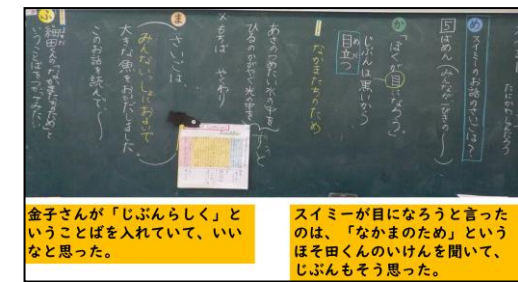 め スイミーのお話のさいごは?
5 ばめん(みんなが一ぴきの〜)
か
「ぼくが目になろう。」
じぶんは黒いから
目立つ
なかまたちのため
あさのつめたい水の中を
ひるのかがやく光の中を
ずっと
ま
さいごは、
みんないっしょにおよいで
大きな魚をおいだしました。
このお話を読んで〜
ふ 細田くんの「なかまのため」と
いうことばをつかってみたい。
金子さんが「じぶんらしく」と
いうことばを入れていて、いい
なと思った。
スイミーが目になろうと言った
のは、「なかまのため」という
ほそ田くんのいけんを聞いて、
じぶんもそう思った。